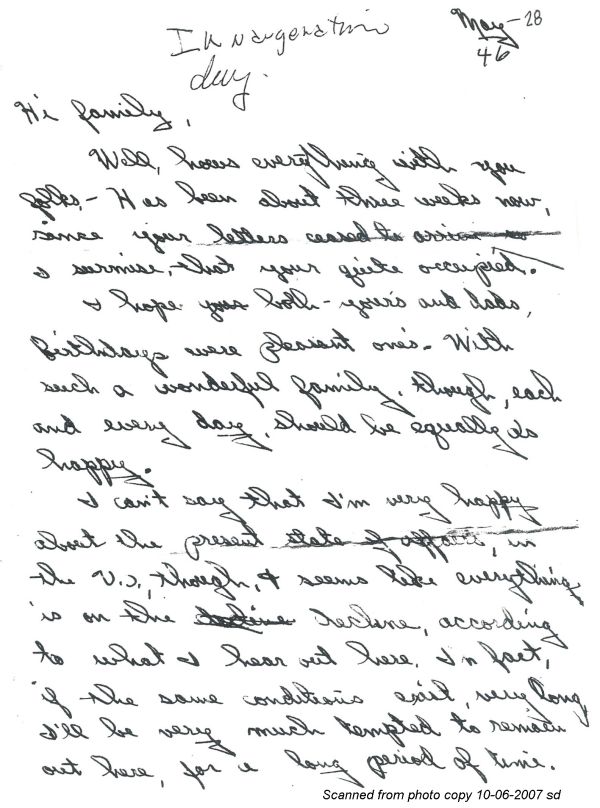 May-28
46
Inaugeration
day.
Hi family,
Well, hows everything with you
folks,- Has been about three weeks now,
since your letters ceased to arrive so
I surmise,-that your quite occupied.
I hope your both-yours and dads,
Birthdays were pleasant ones- With
such a wonderful family, though, each
and every day, should be equally as
happy.
I can't say that I'm very happy
about the present state of affairs, in
the U.S., though, It seems like everything
is on the decline, according
to what I hear out here. In fact,
if the same conditions exist, very long
I'll be very much tempted to remain
out here, for a long period of time.
Scanned from photo copy 10-06-2007 sd